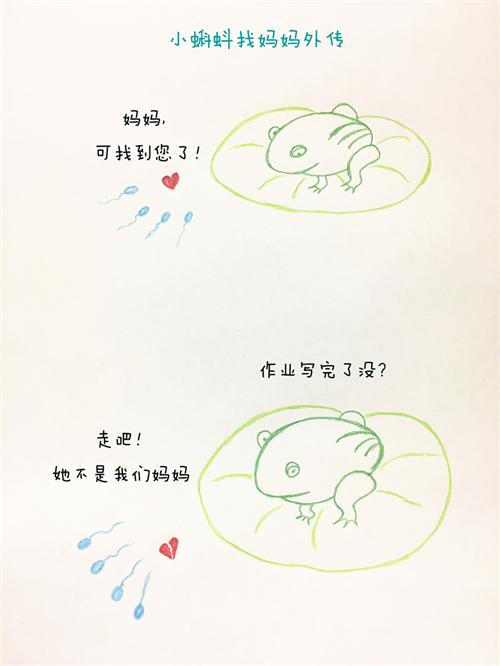 小蝌蚪找妈妈外传
妈妈,
可找到您了!
作业写完了没?
走吧!
她不是我们妈妈